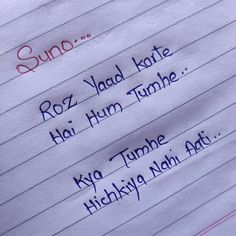 Suno...
Roz Yaad karte
Hai Hum Tumhe..
Kya Tumhe
Hichkiya Nahi Aati..